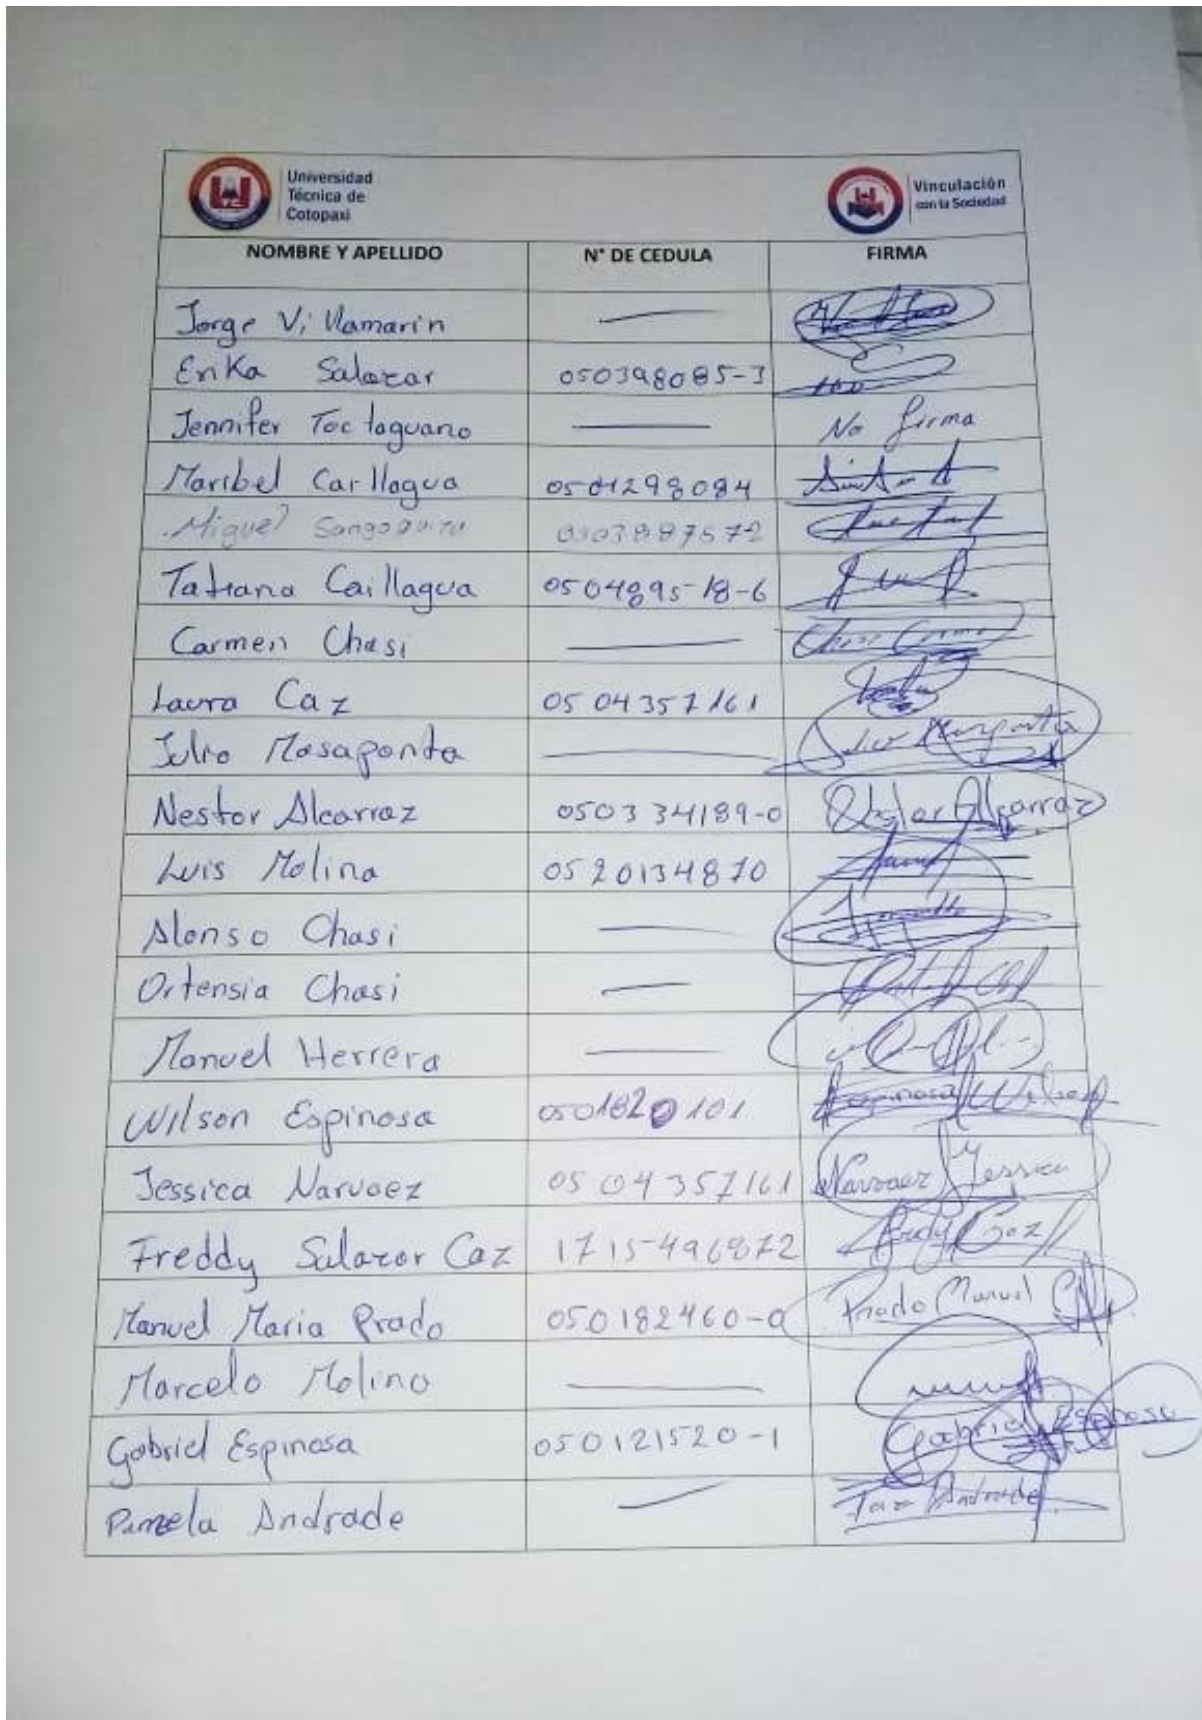 Universidad
Técnica de
Cotopaxi
Vinculación
con la Sociedad
NOMBRE Y APELLIDO N° DE CEDULA FIRMA
Jorge Villamarin —
Erika Salazar 050398085-3
Jennifer Toctaguano — No firma
Maribel Caillagua 0501298084
Miguel Sangoquiza 0503887572
Tatiana Caillagua 0504895-18-6
Carmen Chasi — Chasi Carmen
Laura Caz 0504357161
Julio Masaponta —
Nestor Alcarraz 050334189-0 Nestor Alcarraz
Luis Molina 0520134870
Alonso Chasi —
Ortensia Chasi —
Manuel Herrera —
Wilson Espinosa 0501820101 Espinosa Wilson
Jessica Narvaez 0504357161 Narvaez Jessica
Freddy Salazar Caz 1715496872 Fredy Caz
Manuel Maria Prado 050182460-0 Prado Manuel
Marcelo Molina —
Gabriel Espinosa 050121520-1 Gabriel Espinosa
Pamela Andrade — Andrade